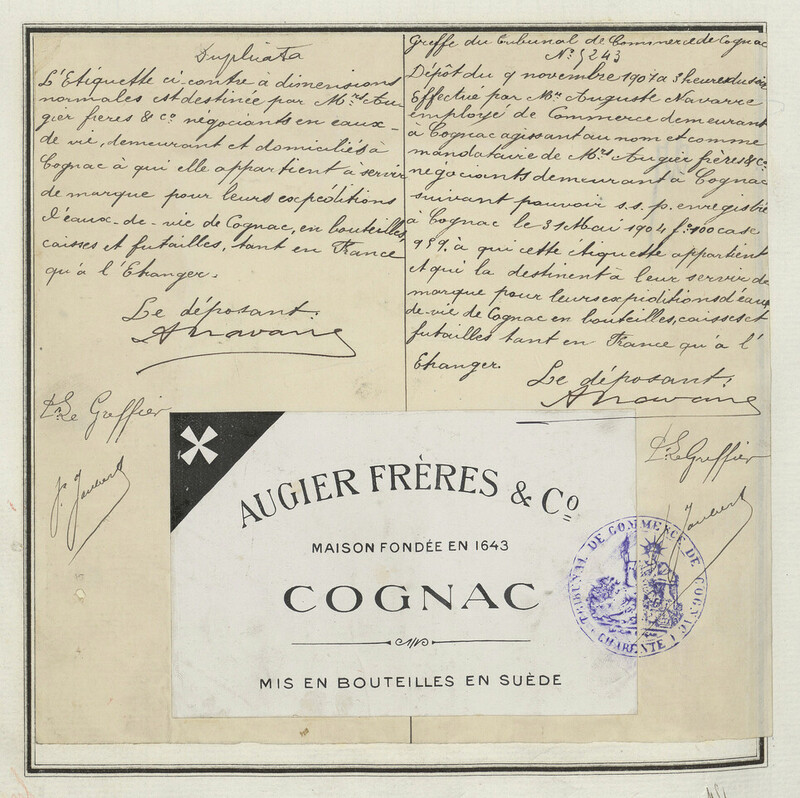 Duplicata
L'Etiquette ci-contre à dimensions
normales est destinée par Mrs Au-
gier frères & Co négociants en eaux-
de vie, demeurant et domiciliés à
Cognac à qui elle appartient à servir
de marque pour leurs expéditions
d'eaux-de-vie de Cognac, en bouteilles,
caisses et futailles, tant en France
qu'à l'Etranger.
Le déposant:
Pr Le Greffier
Greffe du tribunal de Commerce de Cognac
No 5243
Dépôt du 9 novembre 1907 à 3 heures du soir
Effectué par Mr Auguste Navarre
employé de Commerce demeurant
à Cognac agissant au nom et comme
mandataire de Mrs Augier frères & Co
négociants demeurant à Cognac
suivant pouvoir s.s.p. enregistré
à Cognac le 31 Mai 1904 fo 100 case
959, à qui cette étiquette appartient
et qui la destinent à leur servir de
marque pour leurs expéditions d'eaux-
de-vie de Cognac en bouteilles, caisses et
futailles tant en France qu'à l'
Etranger.
Le déposant:
Pr Le Greffier
AUGIER FRÈRES & Co
MAISON FONDÉE EN 1643
COGNAC
MIS EN BOUTEILLES EN SUÈDE
TRIBUNAL DE COMMERCE DE COGNAC
CHARENTE